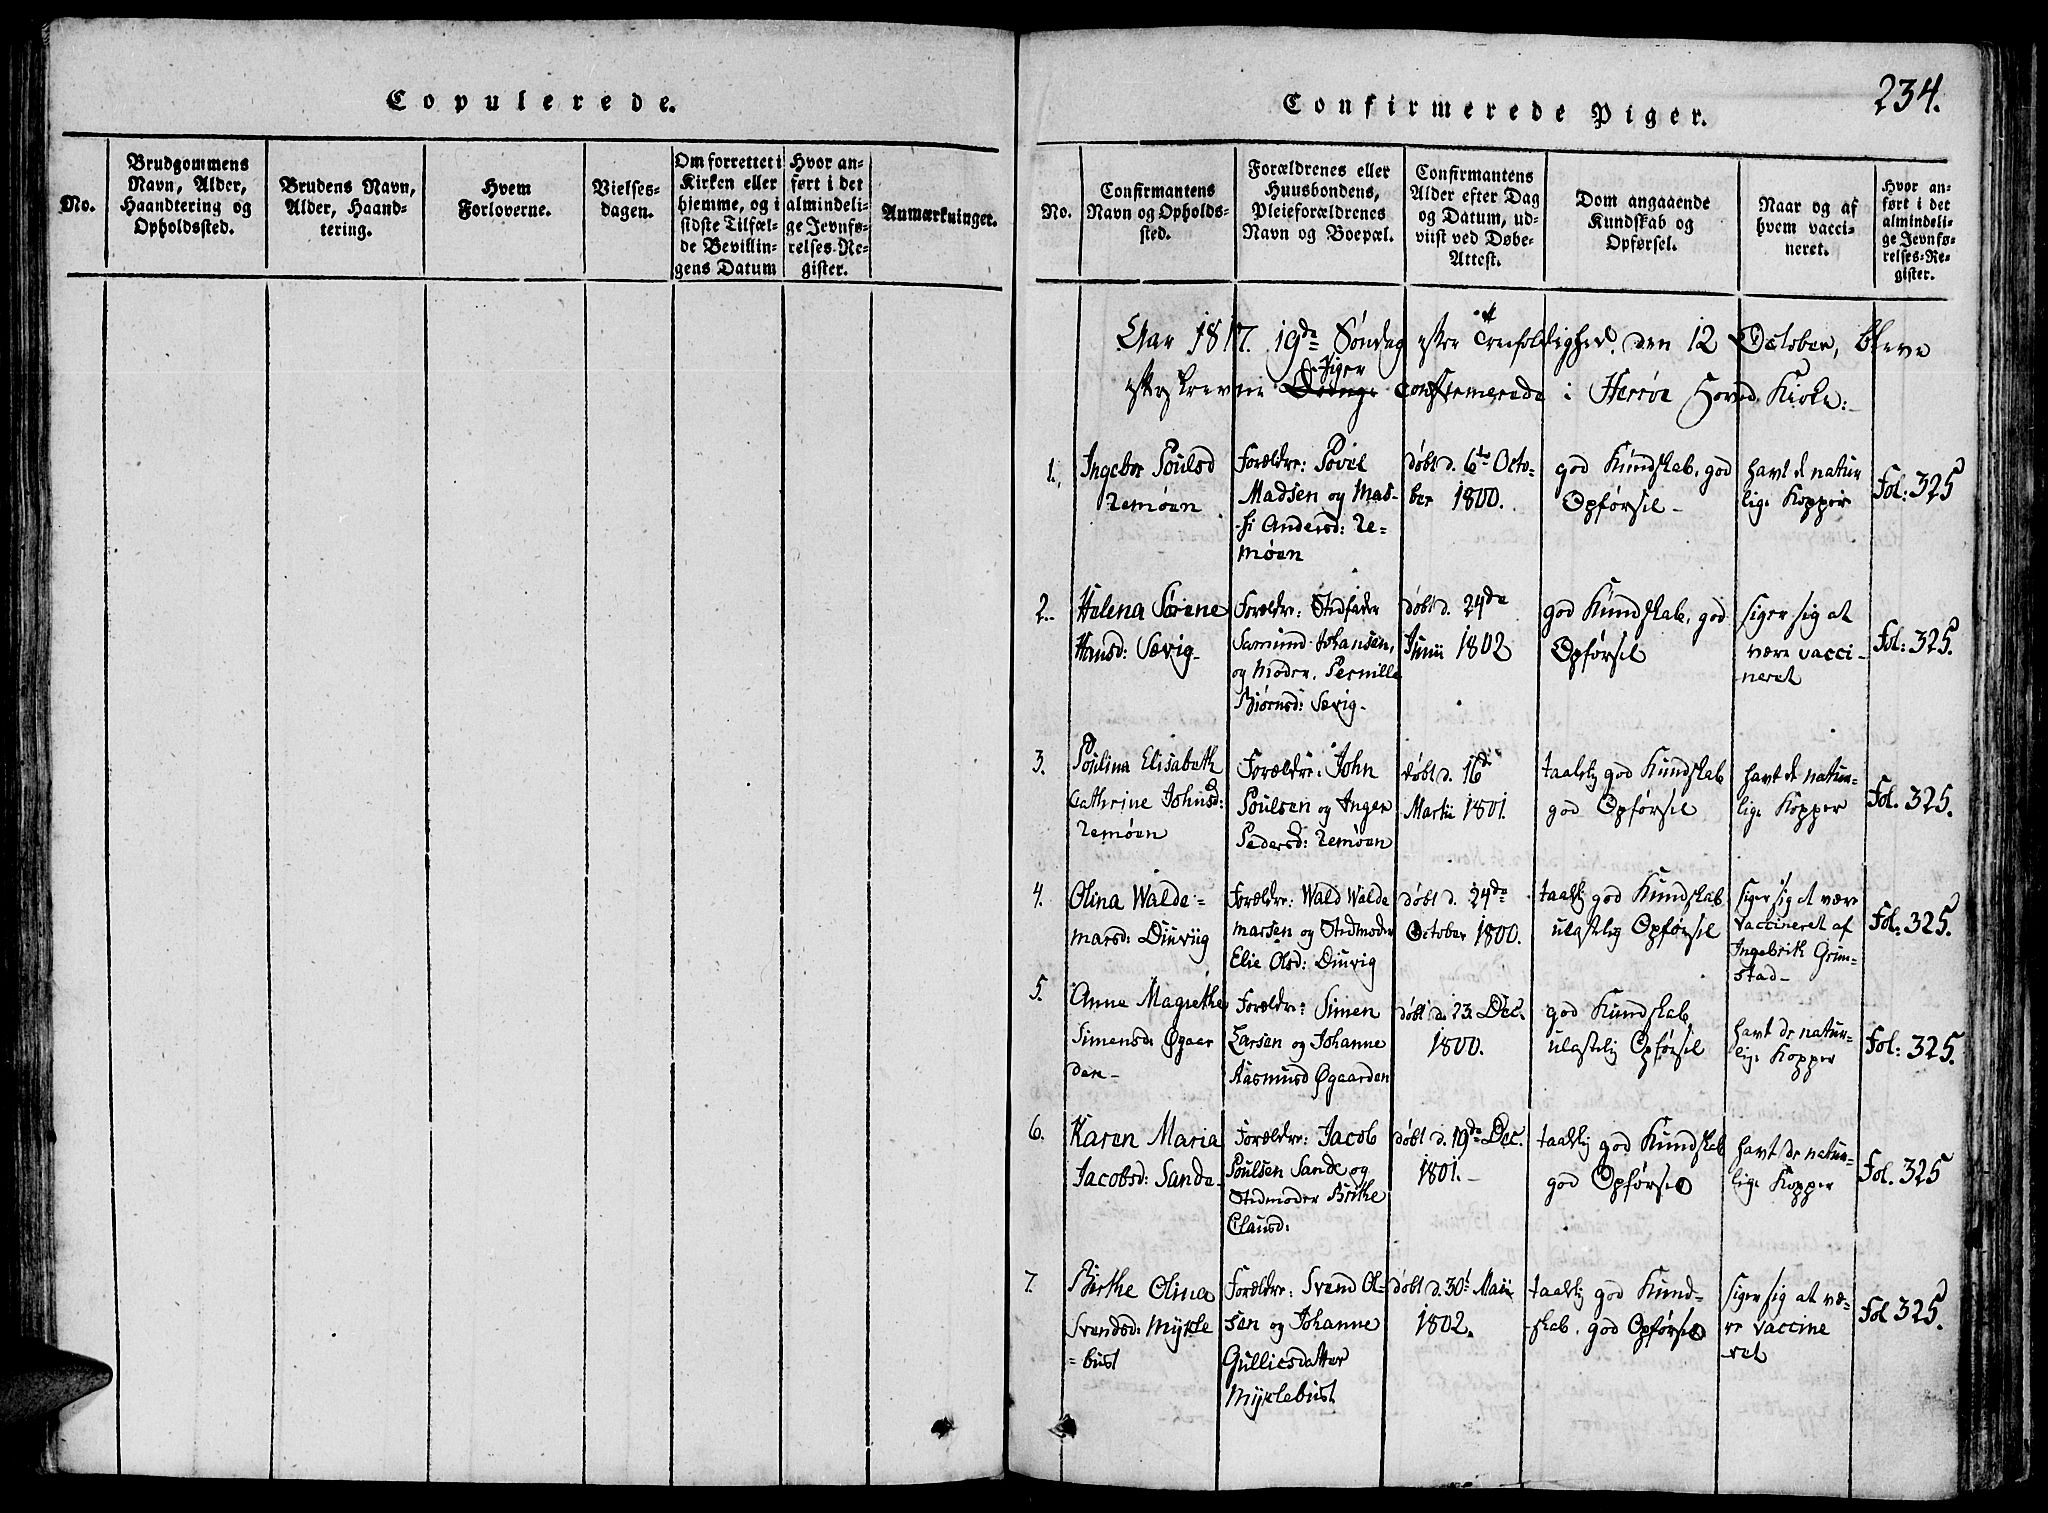 Copulerede.
No.
Brudgommens
Navn, Alder,
Haandtering og
Opholdssted.
Brudens Navn,
Alder, Haand-
tering.
Hvem
Forloverne.
Vielses-
dagen.
Om forrettet i
Kirken eller
hjemme, og i
sidste Tilfæl-
de Bevillin-
gens Datum
Hvor an-
ført i det
almindeli-
ge Jevnfø-
relses-Re-
gister.
Anmærkninger.
234.
Confirmerede Piger.
No.
Confirmantens
Navn og Opholds-
sted.
Forældrenes eller
Huusbondens,
Pleieforældrenes
Navn og Boepæl.
Confirmantens
Alder efter Dag
og Datum, ud-
viist ved Døbe-
Attest.
Dom angaaende
Kundskab og
Opførsel.
Naar og af
hvem vacci-
neret.
Hvor an-
ført i det
almindeli-
ge Jevnfø-
relses-Re-
gister.
Aar 1817. 19de Søndag efter Trefoldighed, den 12 October, bleve
efterskrevne Drenge Piger confirmerede i Herrøe Hoved Kirke:
1.
Ingebor Poulsd
Remøen
Forældre: Povel
Madsen og Mas-
si Andersd: Re-
møen
døbt d. 6te Octo-
ber 1800.
god Kundskab, god
Opførsel
havt de natur
lige Kopper
Fol: 325
2.
Helena Sørine
Hansd: Sævig
Forældre: Stedfader
Samund Johansen,
og Moder, Pernille
Biørnsd: Sævig
døbt d. 24de
Junii 1802
god Kundskab, god
Opførsel
siger sig at
være vacci-
neret
Fol: 325.
3.
Poulina Elisabeth
Cathrine Johnsd:
Remøen
Forældre: John
Poulsen og Inger
Pedersd: Remøen
døbt d. 16de
Martii 1801.
taalelig god Kundskab
god Opførsel
havt de natur-
lige Kopper
Fol. 325.
4.
Olina Walde-
marsd: Diuviig
Forældre: Wald Walde
marsen og Stedmoder
Elie Olsd: Diuvig
døbt d. 24de
October 1800.
taalelig god Kundskab
ulastelig Opførsel
siger sig at være
vaccineret af
Ingebrikt Grim-
stad
Fol: 325.
5.
Anne Magrethe
Simensd: Øgaar
den
Forældre: Simen
Larsen og Johanne
Rasmusd Øgaarden
døbt d. 23. Dec.
1800.
god Kundskab
ulastelig Opførsel
havt de natur-
lige Kopper
Fol: 325.
6.
Karen Maria
Jacobsd: Sande
Forældre: Jacob
Poulsen Sande og
Stedmoder Brithe
Clausd:
døbt d. 19de Dec.
1801.
taalelig god Kundskab
god Opførsel
havt de natur-
lige Kopper
Fol. 325
7.
Birthe Olina
Svendsd: Mÿkle
bust
Forældre: Svend Ol-
sen og Johanne
Gullicsdatter
Mÿklebust
døbt d. 30t Maii
1802.
taalelig god Kund-
skab, god Opførsel
siger sig at væ-
re vaccine
ret
Fol 325.